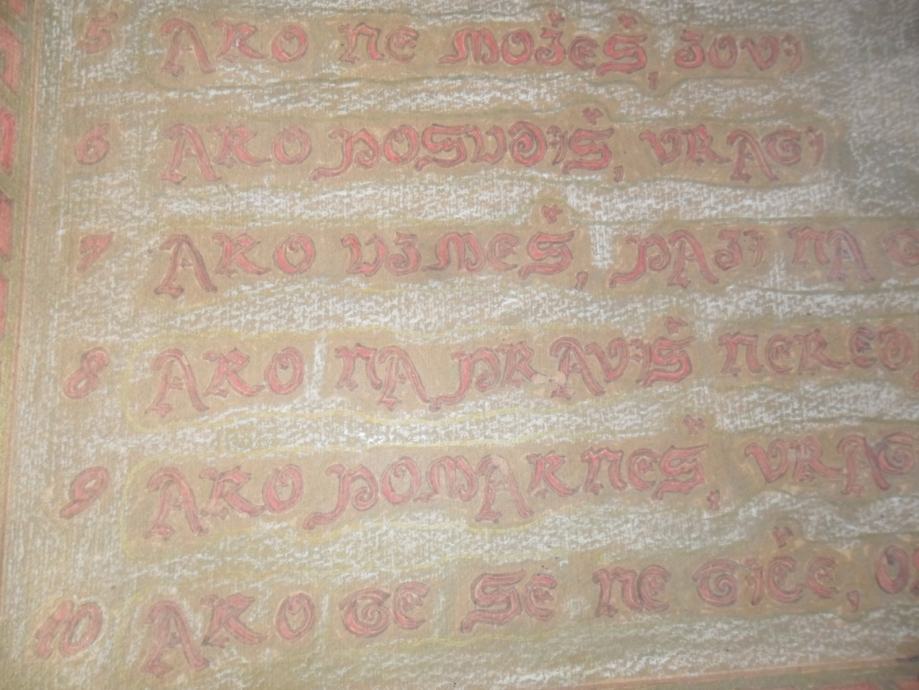 5 AKO NE MOŽEŠ, ZOVI
6 AKO POSUDIŠ, VRATI
7 AKO UZMEŠ, PAZI NA
8 AKO NAPRAVIŠ NERED
9 AKO POMAKNEŠ, VRATI
10 AKO TE SE NE TIČE,